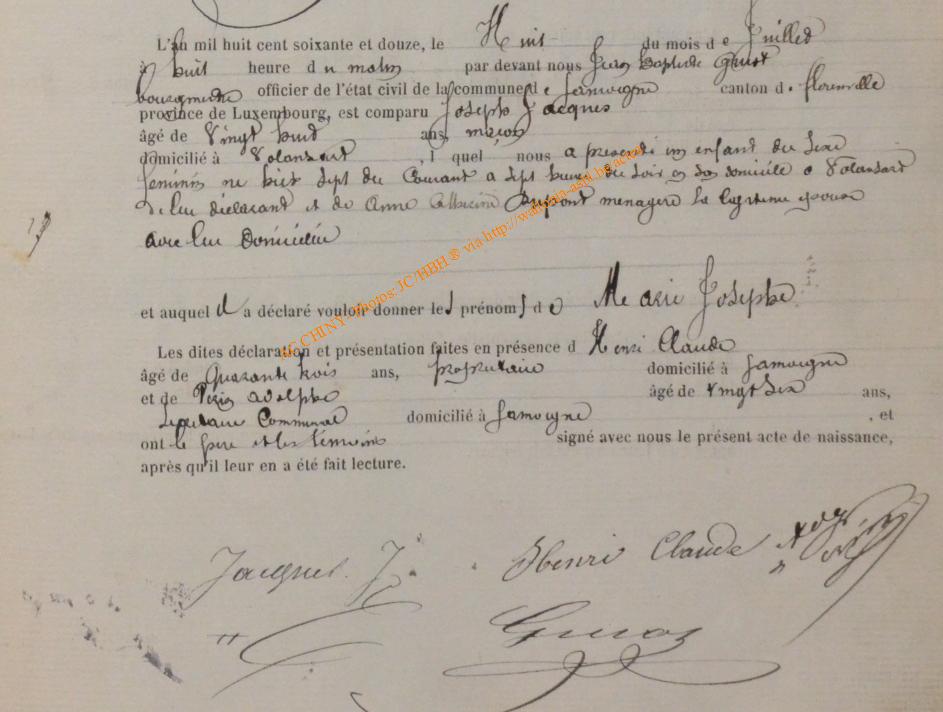 L'an mil huit cent soixante et douze, le Huit du mois de Juillet
à huit heure du matin par devant nous Jean Baptiste
bourgmestre officier de l'état civil de la commune de Jamoigne canton de florenville
province de Luxembourg, est comparu Joseph Jacques
âgé de Vingt huit ans, maçon
domicilié à Valansart, l quel nous a présenté un enfant du Sexe
feminin né hier sept du Courant à sept heures du soir en son domicile à Valansart
de lui déclarant et de Anne Catherine Dupont menagere la légitime épouse
avec lui Domiciliée
et auquel il a déclaré vouloir donner les prénoms de Marie Josephe
Les dites déclaration et présentation faites en présence d Henri Claude
âgé de Quarante trois ans, propriétaire domicilié à Jamoigne
et de Adolphe âgé de Vingt Six ans,
Secrétaire Communal domicilié à Jamoigne, et
ont le père et les témoins signé avec nous le présent acte de naissance,
après qu'il leur en a été fait lecture.
AC CHINY Photos: JC/HBH ® via http://wallonia-asbl.bg.actes/
Jacques J. Henri Claude